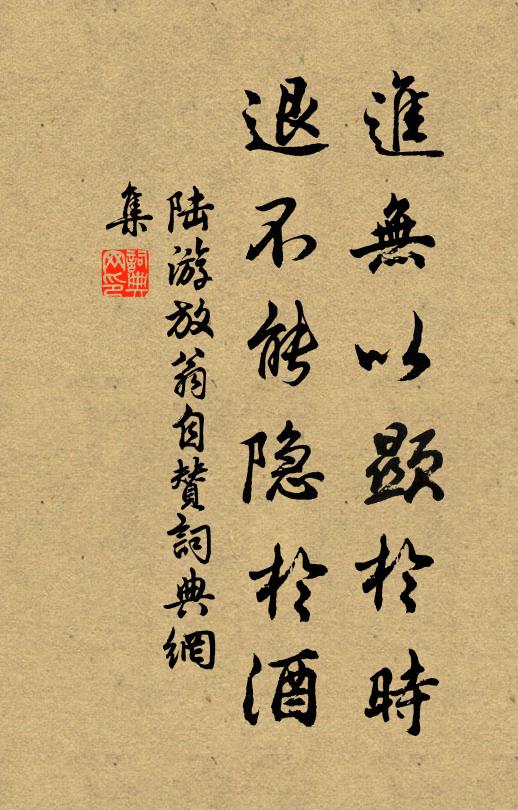 進無以顯於時
退不能隐於酒
陆游放翁自赞詞典網
集
詞典
网印